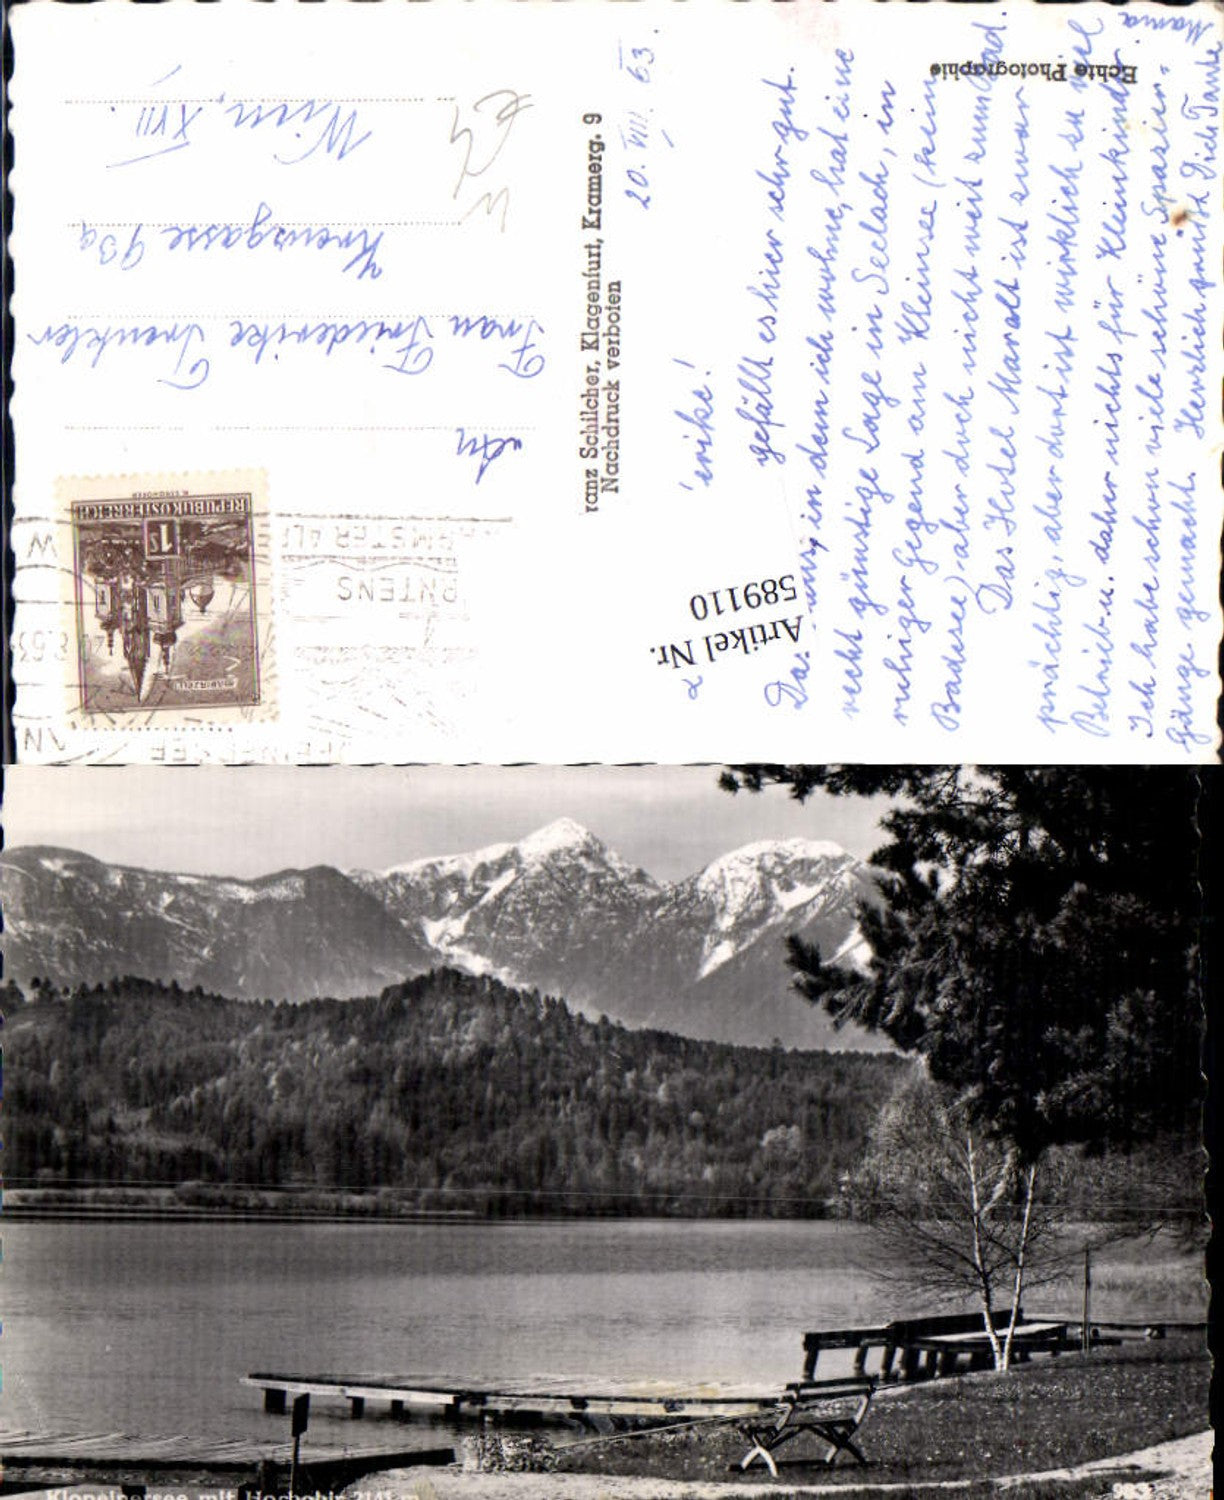 Echte Photographie
20. VIII. 63.
erike!
gefällt es hier sehr gut.
in dem ich wohne, hat eine
recht günstige Lage in Seelach, in
ruhiger Gegend am Kleinsee (kein
Badesee) aber doch nicht weit zum Bad.
Das Hotel Marolt ist zwar
prächtig, aber dort ist wirklich zu viel
Betrieb u. daher nichts für Kleinkinder.
Ich habe schon viele schöne Spazier-
gänge gemacht. Herzlich grüßt Dich Tante
Mama
Artikel Nr.
589110
ranz Schilcher, Klagenfurt, Kramerg. 9
Nachdruck verboten
REPUBLIK ÖSTERREICH
1S
Frau Friederike Trenkler
Kreuzgasse 93a
Wien, XVII.
Klopeinersee mit Hochobir 2141 m
983